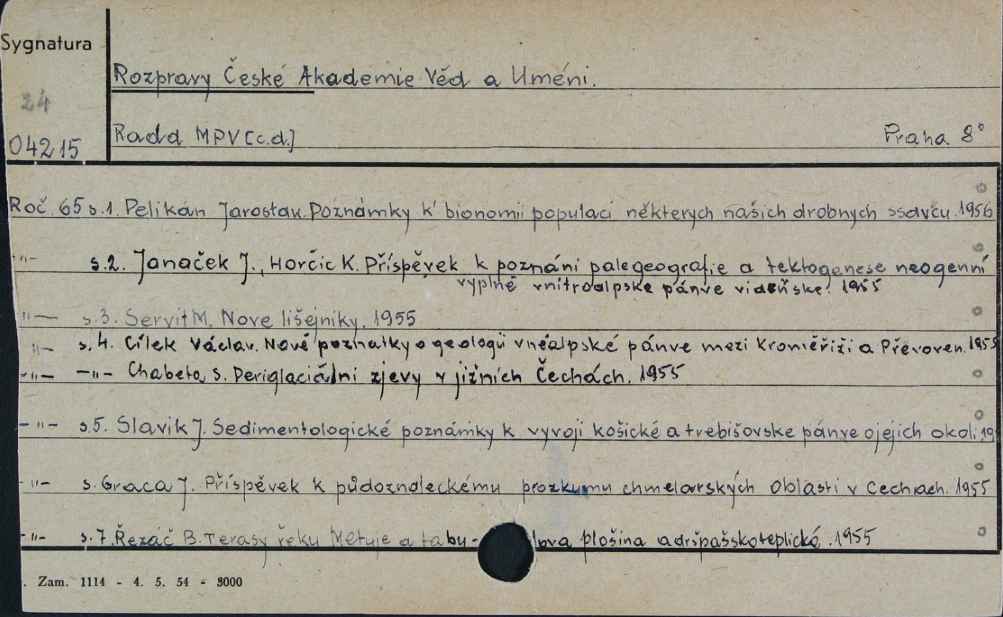 Sygnatura
Rozpravy České Akademie Věd a Uméni.
24
04215
Rada MPV [c.d.]
Praha 8°
Roč. 65 s.1. Pelikán Jaroslav. Poznámky k bionomii populaci některych našich drobnych ssavcu. 1956
-"- s.2. Janaček J., Horčic K. Příspěvek k poznáni palegeografie a tektogenese neogenni
vyplně vnitroalpske pánve vidеňske. 1955
-"- s.3. Servit M. Nove lišejniky. 1955
-"- s.4. Cílek Václav. Nové poznatky o geologii vněalpské pánve mezi Kroměřiži a Převoven. 1955
-"- -"- Chabeta, S. Periglaciálni zjevy v jižních Čechách. 1955
-"- s.5. Slavik J. Sedimentologické poznámky k vyvoji košické a trebišovske pánve ojejich okoli 19
-"- s.6 raca J. Příspěvek k půdoznaleckému prozkumu chmelarských oblasti v Cechach. 1955
-"- s.7. Řezáč B. Terasy řeku Metuje a tabu- lova plošina adršpašskoteplická. 1955
. Zam. 1114 - 4. 5. 54 - 3000